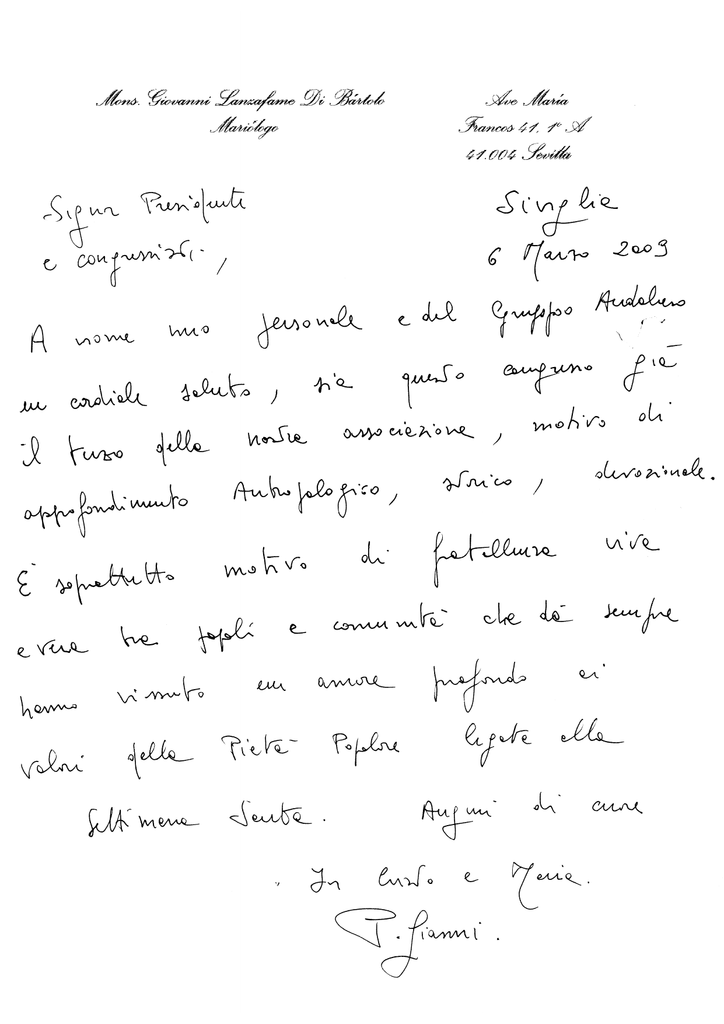 Mons. Giovanni Lanzafame Di Bártolo
Mariólogo
Ave María
Francos 41. 1º A
41.004 Sevilla
Signor Presidente
e congressisti,
Siviglia
6 Marzo 2009
A nome mio personale e del Gruppo Andaluso
un cordiale saluto, sia questo congresso già
il terzo della nostra associazione, motivo di
approfondimento Antropologico, storico, devozionale.
E' soprattutto motivo di fratellanza viva
e vera tra popoli e comunità che dà sempre
hanno vissuto un amore profondo ai
valori della Pietà Popolare legata alla
Settimana Santa. Auguri di cuore
In Cristo e Maria.
P. Gianni.